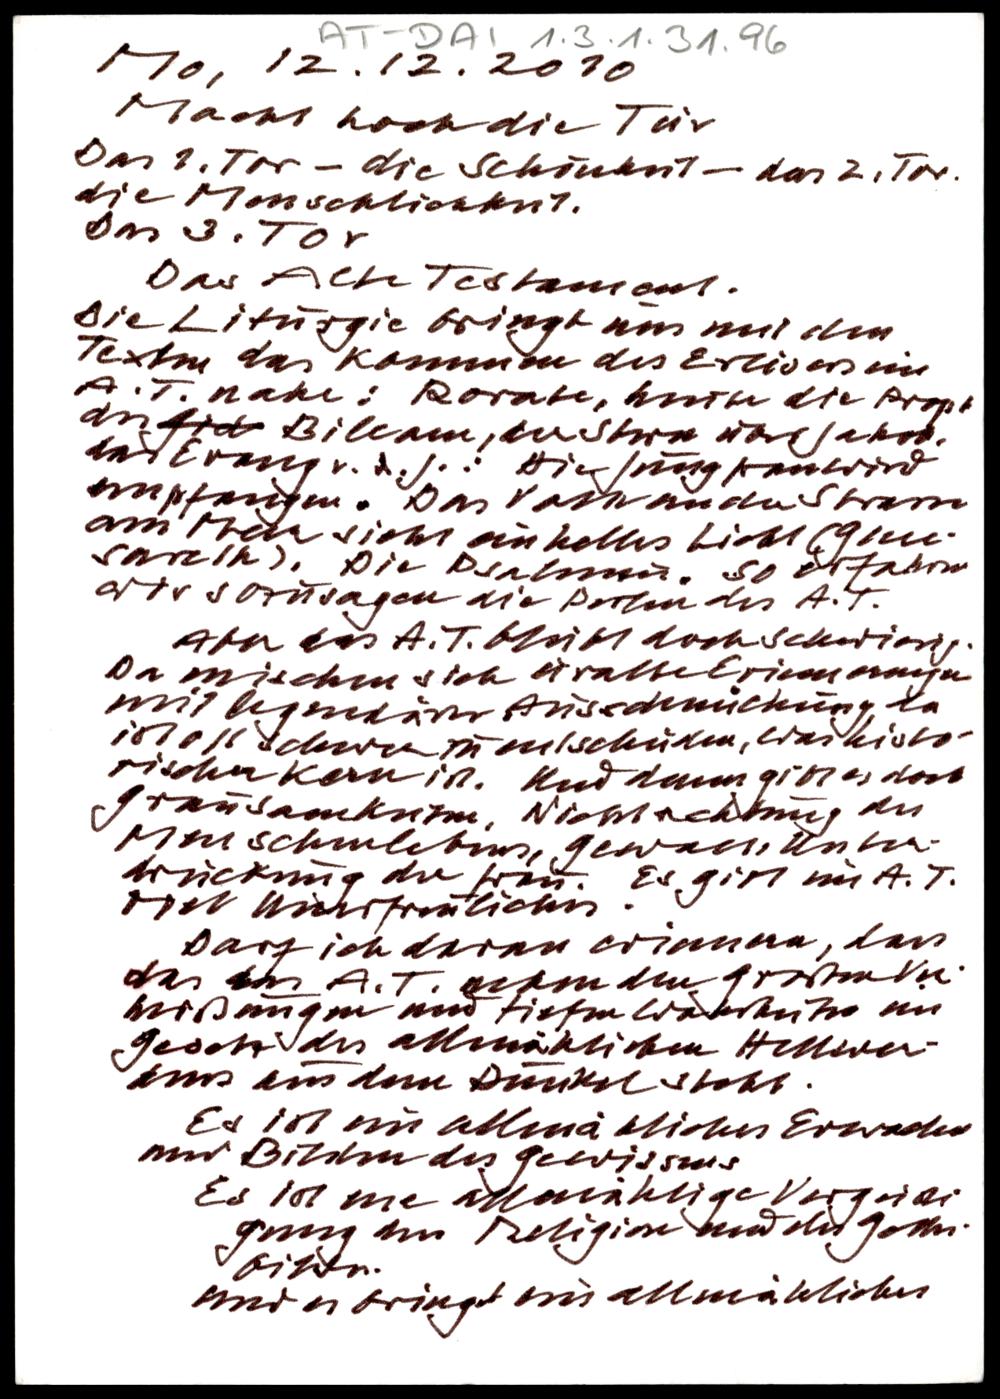 AT-DAI 1.3.1.31.96
Mo, 12.12.2010
Macht hoch die Tür
Das 1. Tor – die Schönheit – das 2. Tor.
die Menschlichkeit.
Das 3. Tor
Das Alte Testament.
Die Liturgie bringt uns mit den
Texten das Kommen des Erlösers im
A.T. nahe: Rorate, heute die Proph
des Bileam, der Stern über Jakob.
das Evang v. d. J.: Die Jungfrau wird
empfangen. Das Volk an der Strasse
am Meer sieht ein helles Licht (Gene-
sareth). Die Psalmen. So erfahren
wir sozusagen die Perlen des A.T.
Aber das A.T. bleibt doch schwierig.
Da mischen sich uralte Erinnerungen
mit legendärer Ausschmückung da
ist oft schwer zu entscheiden, was histo-
rischer Kern ist. Und dann gibt es doch
Grausamkeiten, Nichtachtung des
Menschenlebens, Gewalt, Unter-
drückung der Frau. Es gibt im A.T.
viel Unerfreuliches.
Darf ich daran erinnern, dass
das A.T. neben den großen Ver-
heißungen und tiefen Wahrheiten im
Gesetz des allmählichen Hellwer-
dens aus dem Dunkel steht.
Es ist ein allmähliches Erwachen
und Bilden des Gewissens
Es ist eine allmählige Vergeisti
gung der Religion und des Gottes-
bildes.
und es bringt ein allmähliches